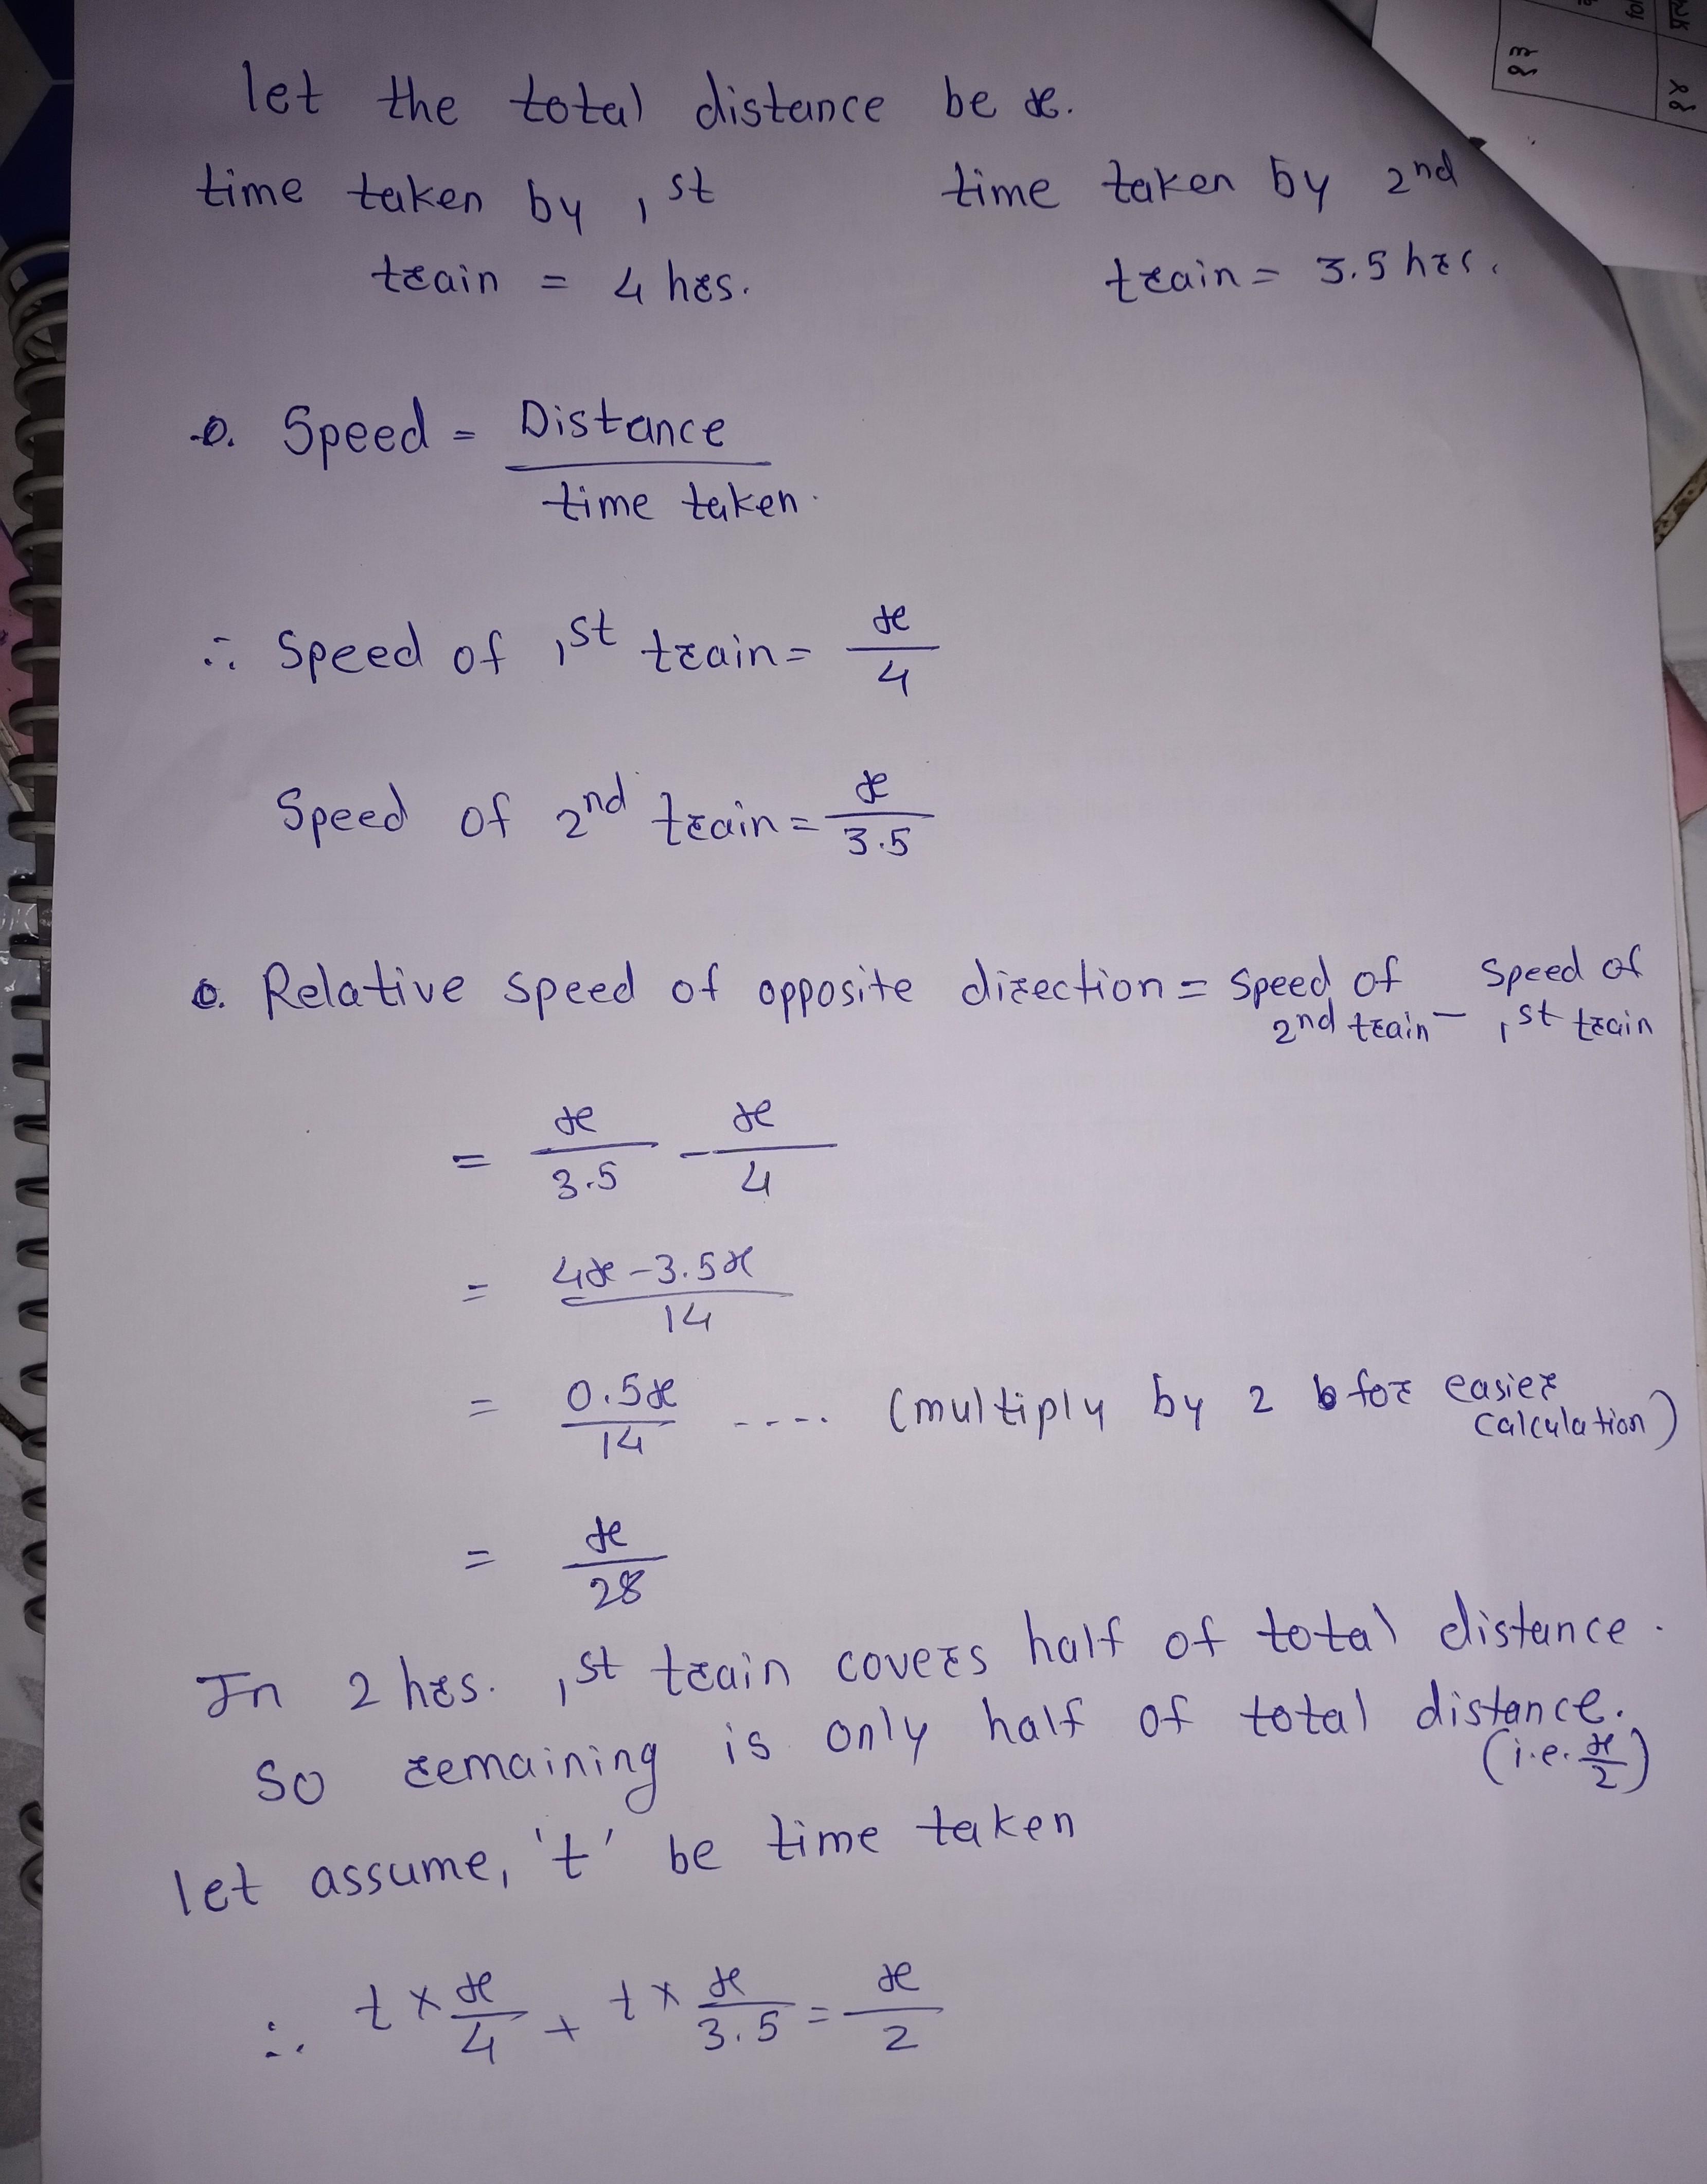 let the total distance be x.
time taken by 1st train = 4 hrs.
time taken by 2nd train = 3.5 hrs.
Speed = Distance / time taken.
∴ Speed of 1st train = x/4
Speed of 2nd train = x/3.5
Relative speed of opposite direction = Speed of 2nd train - Speed of 1st train
= x/3.5 - x/4
= 4x-3.5x / 14
= 0.5x/14 .... (multiply by 2 for easier calculation)
= x/28
In 2 hrs. 1st train covers half of total distance.
So remaining is only half of total distance.
(i.e. x/2)
let assume, 't' be time taken
∴ t × x/4 + t × x/3.5 = x/2
२३
२४